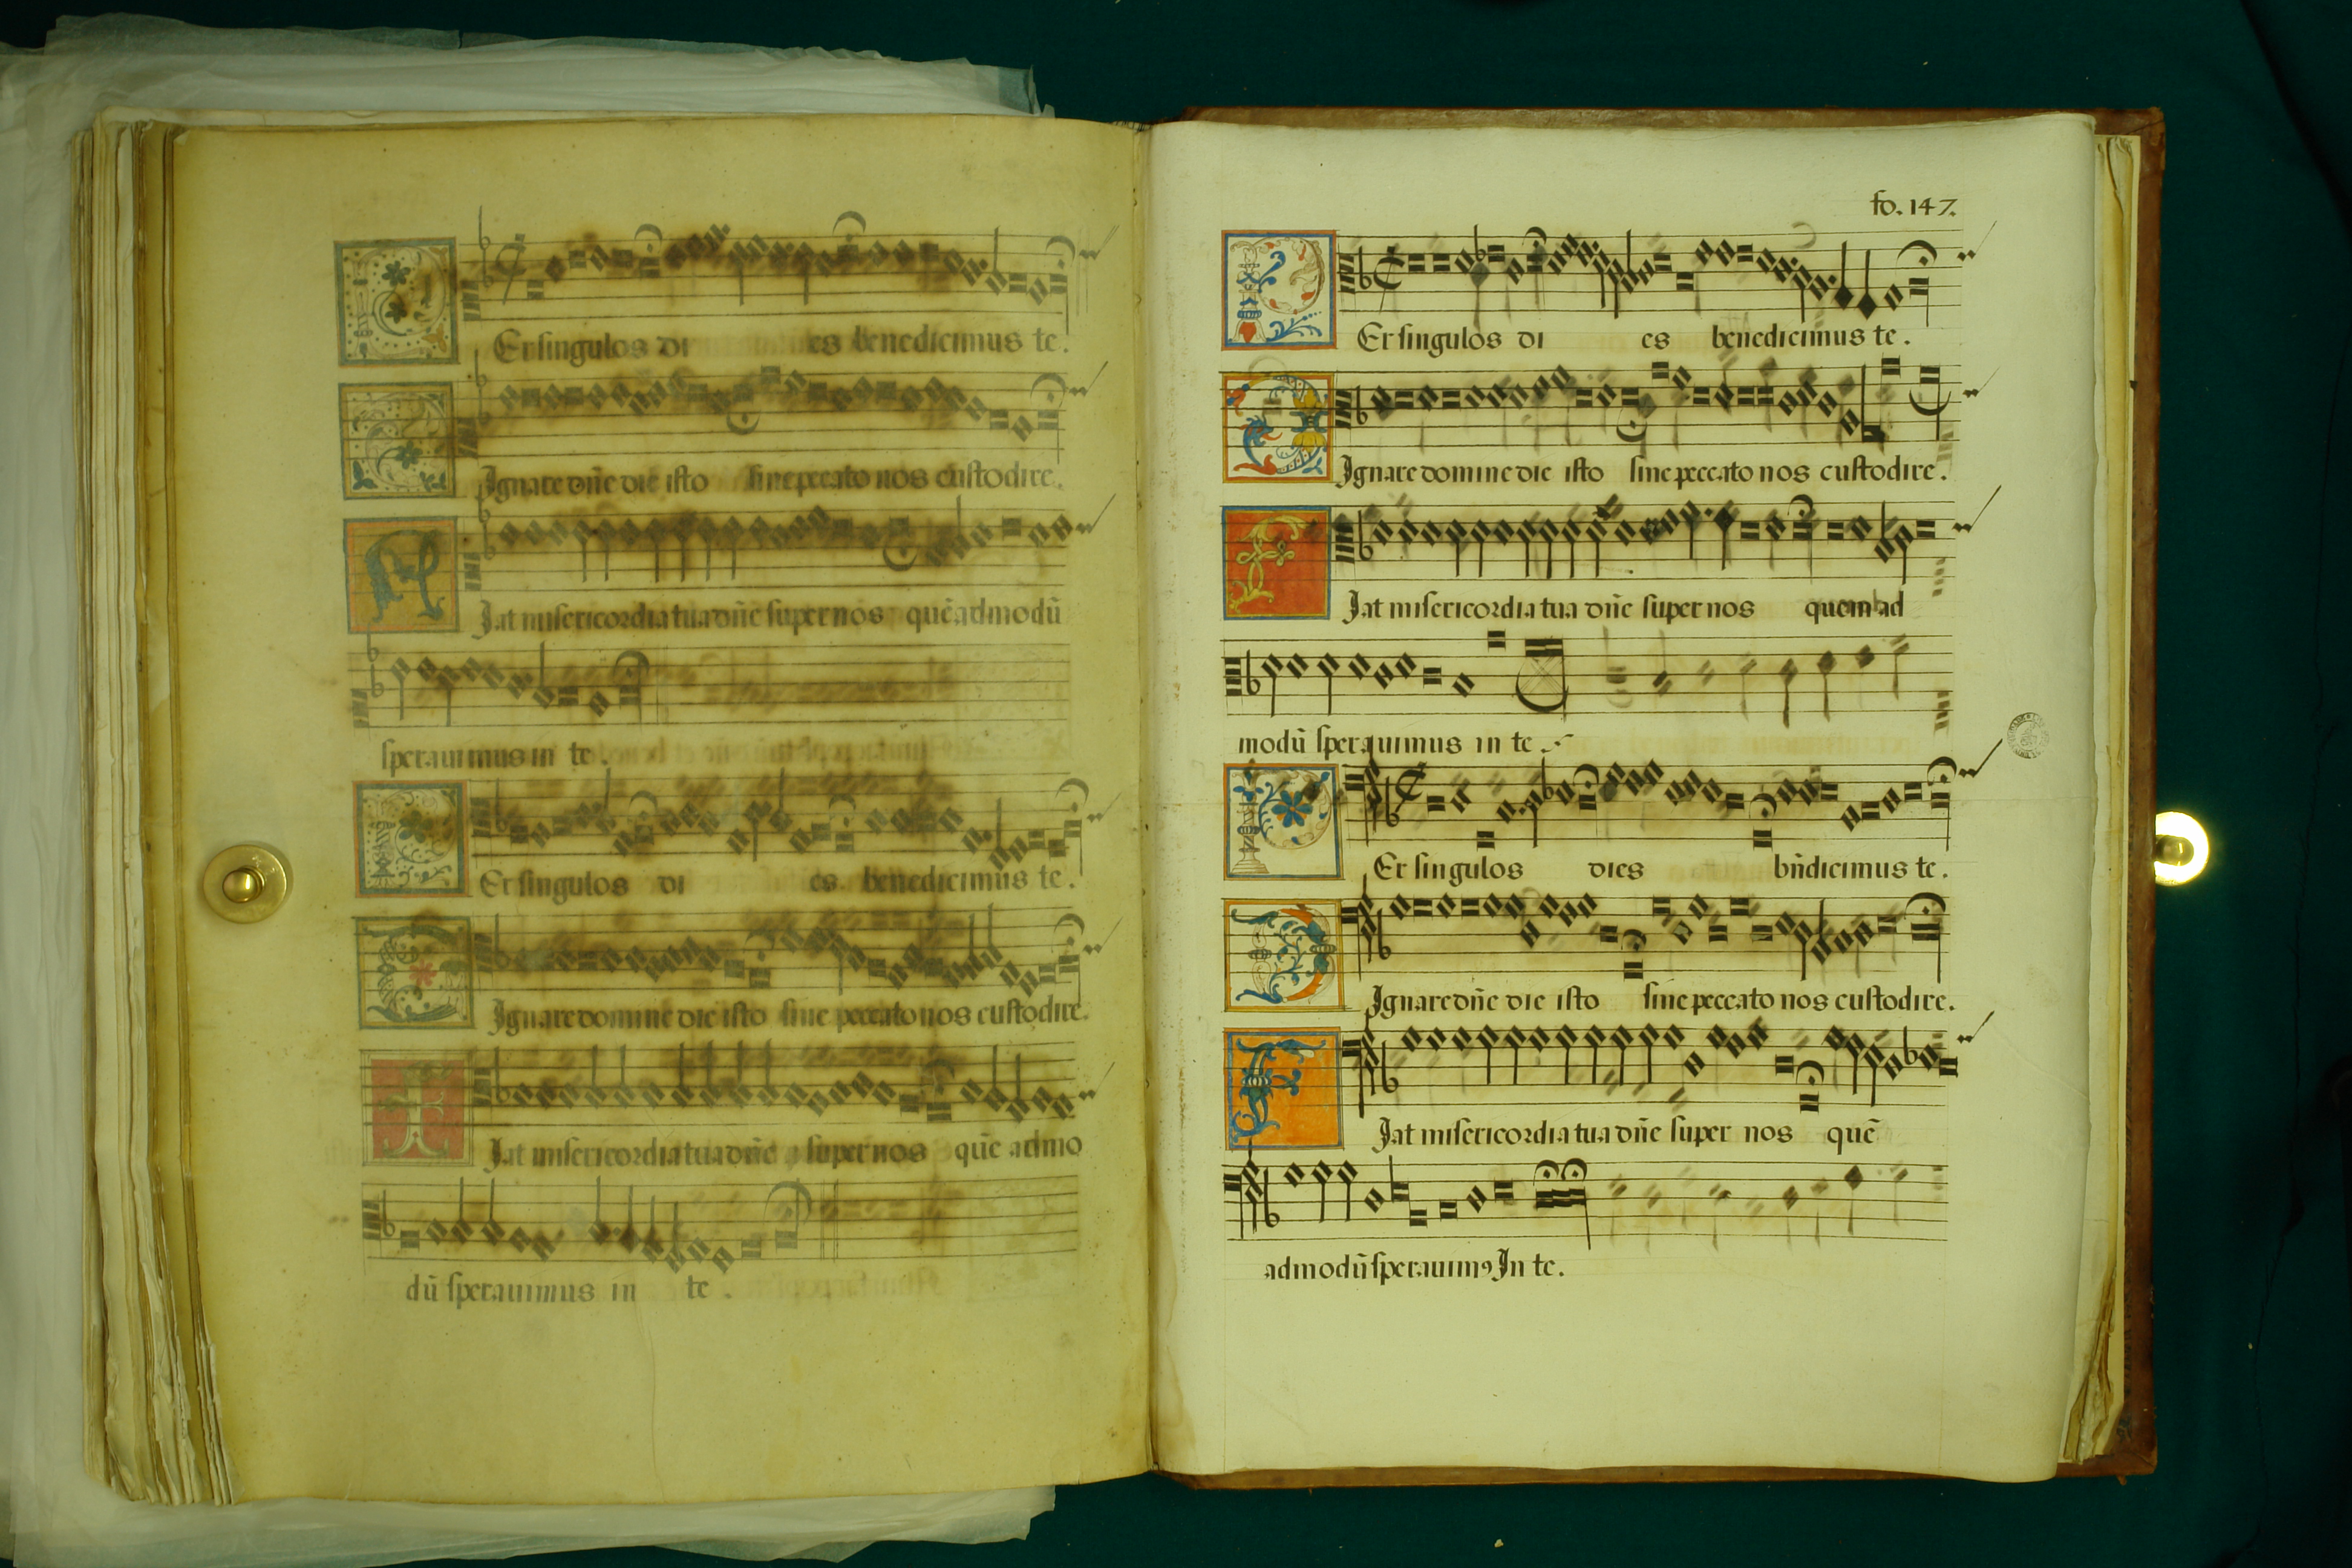 Per singulos di es benedicimus te.
Dignare dñe die isto sine peccato nos custodire.
Fiat misericordia tua dñe super nos quē admodū
sperauimus in te.
Per singulos di es benedicimus te.
Dignare domine die isto sine peccato nos custodire.
Fiat misericordia tua dñe super nos quē admo
dū sperauimus in te.
fo. 147.
Per singulos di es benedicimus te.
Dignare domine die isto sine peccato nos custodire.
Fiat misericordia tua dñe super nos quem ad
modū sperauimus in te
Per singulos dies bñdicimus te.
Dignare dñe die isto sine peccato nos custodire.
Fiat misericordia tua dñe super nos quē
admodū sperauimꝰ In te.